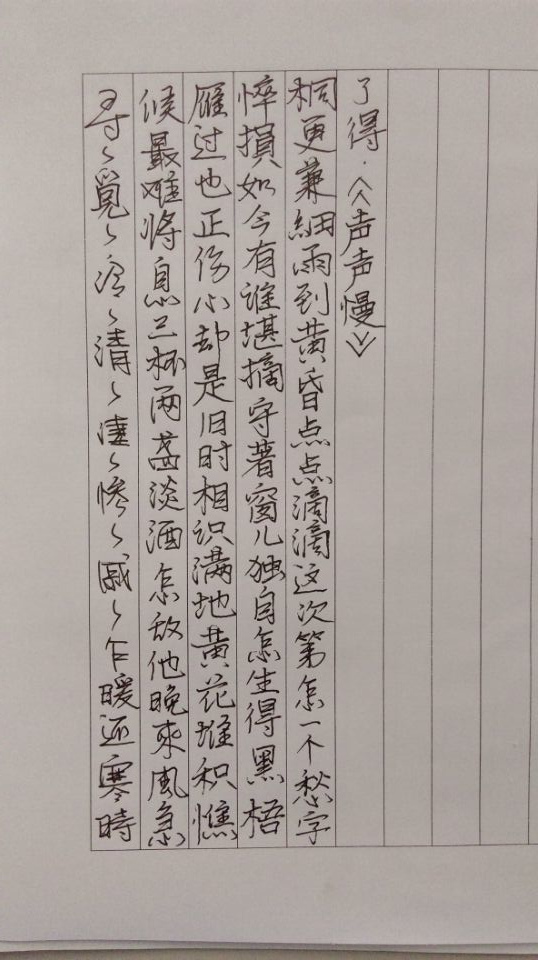 寻〻覓〻冷〻清〻凄〻惨〻戚〻乍暖还寒時
候最难将息三杯两盏淡酒怎敌他晚来風急
雁过也正伤心却是旧时相识满地黄花堆积憔
悴損如今有谁堪摘守著窗儿独自怎生得黑梧
桐更兼細雨到黄昏点点滴滴这次第怎一个愁字
了得.《声声慢》